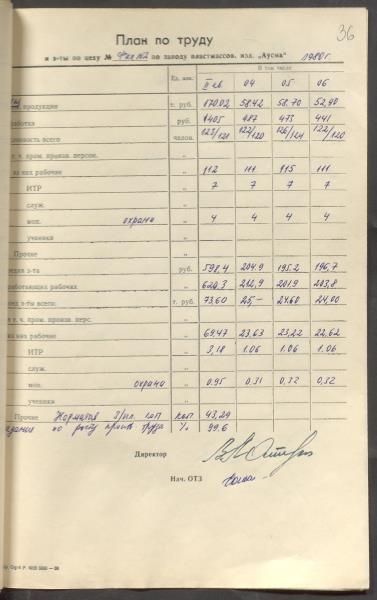 36
План по труду
и з-ты по цеху № Фил №2 по заводу пластмассов. изд. „Аусма" 1980 г.
Ед. изм. В том числе
II кв 04 05 06
продукции т. руб. 170.02 58.42 58.70 52,90
ботка руб. 1405 487 473 441
ленность всего челов. 123/121 122/120 126/124 122/120
т. ч. пром. произв. персон. „
их рабочие „ 112 111 115 111
ИТР „ 7 7 7 7
служ. „
моп. охрана „ 4 4 4 4
ученики „
Прочие „
едняя з-та руб. 598,4 204.9 195.2 196,7
работающих рабочих „ 620.3 212,9 201.9 203,8
онд з-ты всего: т. руб. 73.60 25,- 24.60 24,00
в т. ч. пром. произв. перс. „
них рабочие „ 69.47 23,63 23,22 22,62
ИТР „ 3,18 1.06 1.06 1.06
служ. „
моп. охрана „ 0.95 0.31 0,32 0,32
ученики „
Прочие Норматив з/пл. коп коп 43,29
задание по росту произв труда % 99.6
Директор
Нач. ОТЗ